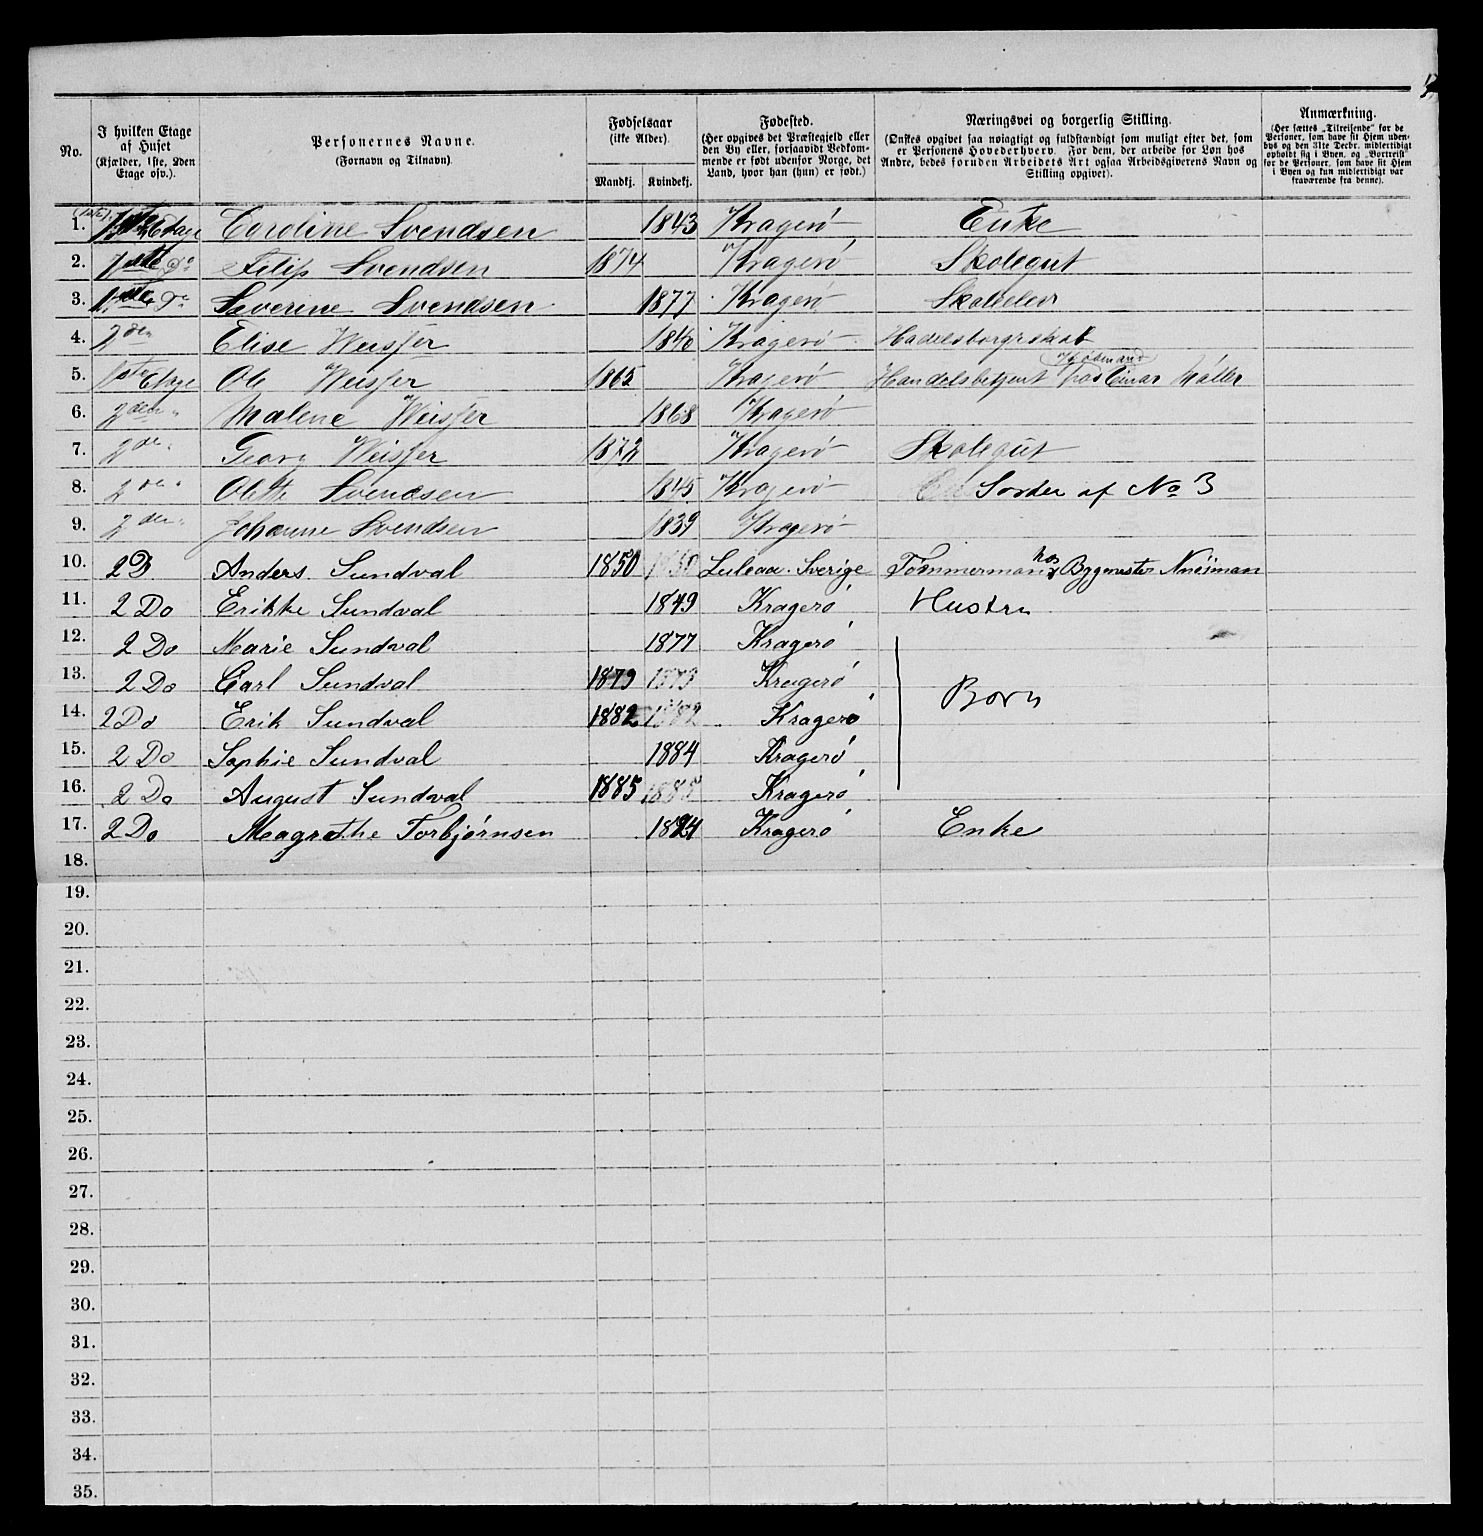 No.
I hvilken Etage
af Huset
(Kjælder, 1ste, 2den
Etage osv.).
Personernes Navne.
(Fornavn og Tilnavn)
Fødselsaar
(ikke Alder).
Mandkj. Kvindekj.
Fødested.
(Her opgives det Præstegjeld eller
den By eller, forsaavidt Vedkom-
mende er født udenfor Norge, det
Land, hvor han (hun) er født.)
Næringsvei og borgerlig Stilling.
(Ønskes opgivet saa nøiagtigt og fuldstændigt som muligt efter det, som
er Personens Hovederhverv. For dem, der arbeide for Løn hos
Andre, bedes foruden Arbeidets Art ogsaa Arbeidsgiverens Navn og
Stilling opgivet).
Anmærkning.
(Her sættes „Tilreisende" for de
Personer, som have sit Hjem uden-
bys og den 31te Decbr. midlertidigt
opholdt sig i Byen, og „Bortreist"
for de Personer, som have sit Hjem
i Byen og kun midlertidigt var
fraværende fra denne).
1. 1ste Etage Caroline Svendsen 1843 Kragerö Enke
2. 1ste Do Filip Svendsen 1874 Kragerö Skolegut
3. 1ste Do Severine Svendsen 1877 Kragerö Skoleelev
4. 2den Elise Weisjer 1840 Kragerö Hadelsborgerskab
5. 1ste Etage Ole Weisjer 1865 Kragerö Handelsbetjent hos Einar Möller
6. 2den Malene Weisjer 1868 Kragerö
7. 2den Georg Weisjer 1872 Kragerö Skolegut
8. 2den Olette Svendsen 1845 Kragerö Soster af No 3
9. 2den Johanne Svendsen 1839 Kragerö
10. 2D Anders Sundval 1850 1850 Luleaa. Sverige Tömmermand hos Bygmester
11. 2 Do Erikke Sundval 1849 Kragerö Hustru
12. 2 Do Marie Sundval 1877 Kragerö
13. 2 Do Carl Sundval 1879 1879 Kragerö Born
14. 2 Do Erik Sundval 1882 1882 Kragerö
15. 2 Do Sophie Sundval 1884 Kragerö
16. 2 Do August Sundval 1885 1885 Kragerö
17. 2 Do Magrethe Torbjørnsen 1824 Kragerö Enke
18.
19.
20.
21.
22.
23.
24.
25.
26.
27.
28.
29.
30.
31.
32.
33.
34.
35.